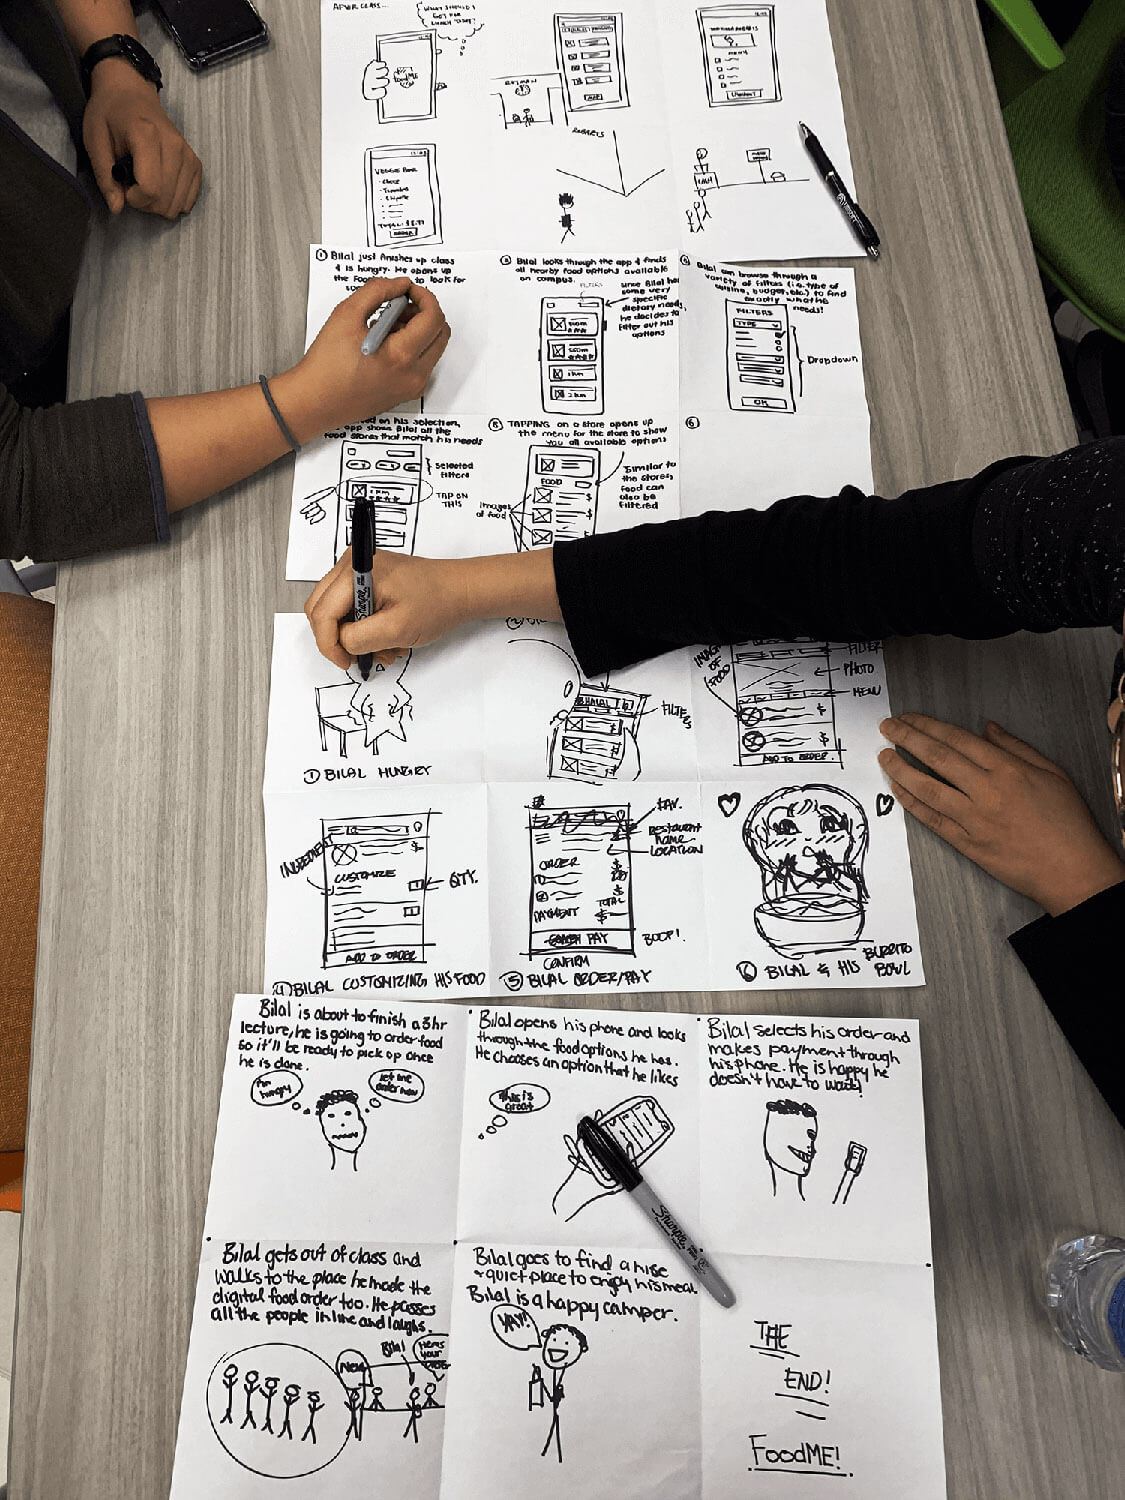 AFTER CLASS...
WHAT SHOULD I
GET FOR
LUNCH TODAY?
ROBARTS
① Bilal just finishes up class
& is hungry. He opens up
to look for
② Bilal looks through the app & finds
all nearby food options available
on campus.
FILTERS
since Bilal has
some very
specific
dietary needs,
he decides to
Filter out his
options
Bilal can browse through a
variety of filters (i.e. type of
cuisine, budget, etc.) to find
exactly what he
needs!
FILTERS
TYPE
OK
Dropdown
on his selection,
app shows Bilal all the
food stores that match his needs
selected
Filters
TAP ON
THIS
⑤ TAPPING on a store opens up
the menu for the store to show
you all available options
FOOD
$
images
of food
Similar to
the stores,
food can
also be
filtered
⑥
① BILAL HUNGRY
FILTERS
IMAGE
OF
FOOD
FILTER
PHOTO
MENU
$
$
ADD TO ORDER
INGREDIENT
CUSTOMIZE
$
QTY.
ADD TO ORDER
④ BILAL CUSTOMIZING HIS FOOD
FAV.
RESTAURANT
NAME
LOCATION
ORDER
$
$
TOTAL
PAYMENT
$
PAY
BOOP!
CONFIRM
⑤ BILAL ORDER/PAY
⑥ BILAL & HIS BURRITO
BOWL
Bilal is about to finish a 3hr
lecture, he is going to order food
so it'll be ready to pick up once
he is done.
I'm
hungry
let me
order now
Bilal opens his phone and looks
through the food options he has.
He chooses an option that he likes
This is
great
Bilal selects his order and
makes payment through
his phone. He is happy he
doesn't have to wait!
Sharpie
Bilal gets out of class and
walks to the place he made the
digital food order too. He passes
all the people in line and laughs.
Bilal
Here's
your
Bilal goes to find a nise
+ quiet place to enjoy his meal.
Bilal is a happy camper.
YAY!
THE
END!
FoodME!